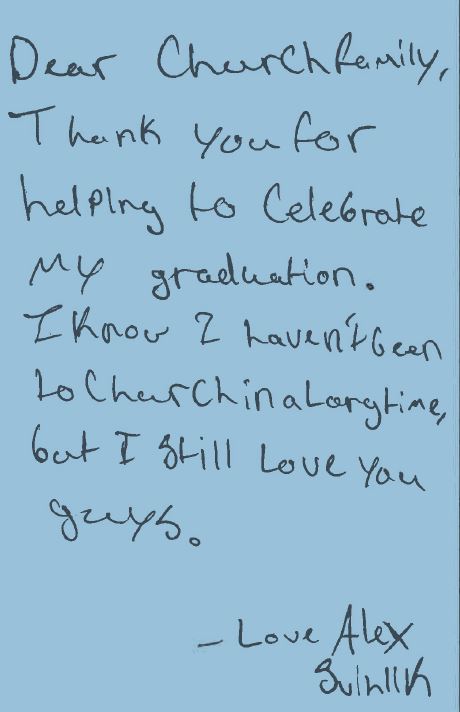 Dear Church family,
Thank you for
helping to Celebrate
My graduation.
I Know I haven't been
to Church in a Long time,
but I Still Love You
guys.
- Love Alex